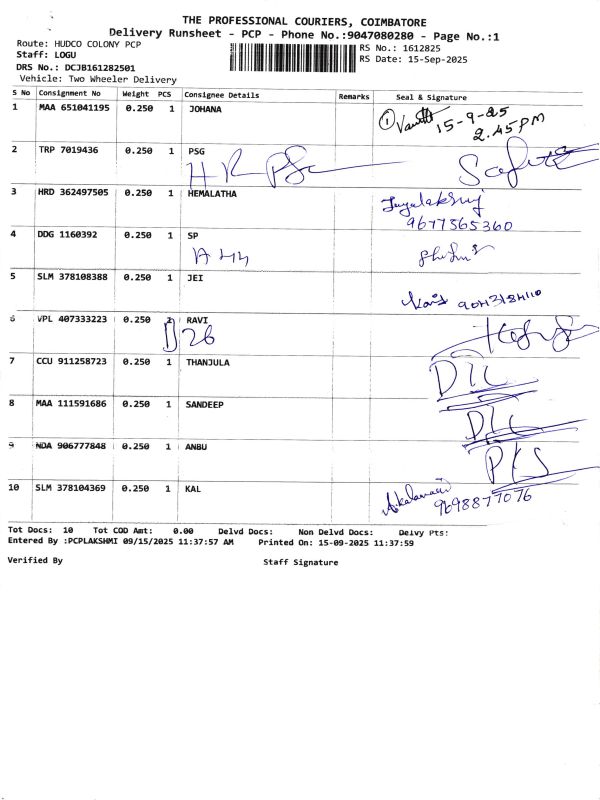 THE PROFESSIONAL COURIERS, COIMBATORE
Delivery Runsheet - PCP - Phone No.:9047080280 - Page No.:1
Route: HUDCO COLONY PCP
Staff: LOGU
DRS No.: DCJB161282501
Vehicle: Two Wheeler Delivery
RS No.: 1612825
RS Date: 15-Sep-2025
S No Consignment No Weight PCS Consignee Details Remarks Seal & Signature
1 MAA 651041195 0.250 1 JOHANA
① 15-9-25
2.45PM
2 TRP 7019436 0.250 1 PSG
HR PSG
3 HRD 362497505 0.250 1 HEMALATHA
9677565360
4 DDG 1160392 0.250 1 SP
5 SLM 378108388 0.250 1 JEI
6 VPL 407333223 0.250 RAVI
26
7 CCU 911258723 0.250 1 THANJULA
8 MAA 111591686 0.250 1 SANDEEP
9 NDA 906777848 0.250 1 ANBU
PKS
10 SLM 378104369 0.250 1 KAL
9698877076
Tot Docs: 10 Tot COD Amt: 0.00 Delvd Docs: Non Delvd Docs: Delvy Pts:
Entered By :PCPLAKSHMI 09/15/2025 11:37:57 AM Printed On: 15-09-2025 11:37:59
Verified By Staff Signature